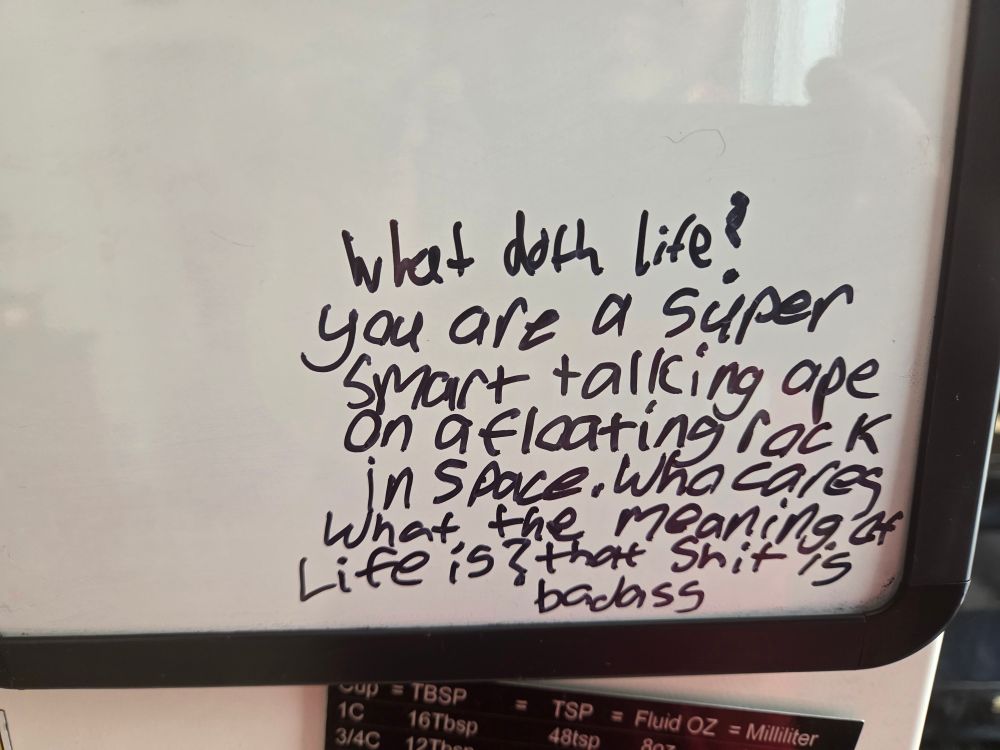 What doth life?
you are a super
smart talking ape
on a floating rock
in space. Who cares
What the meaning of
Life is? that shit is
badass
Cup = TBSP = TSP = Fluid OZ = Milliliter
1C 16Tbsp 48tsp 8oz
3/4C 12Tbsp